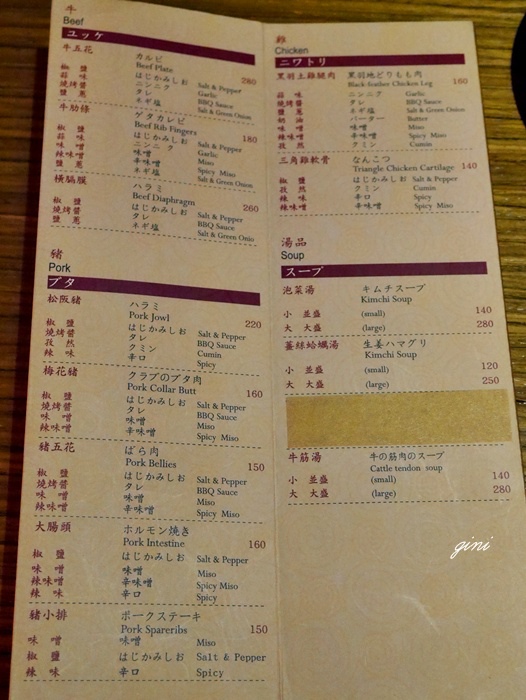 牛
Beef
ユッケ
牛五花 カルビ
Beef Plate 280
椒 鹽 はじかみしお Salt & Pepper
蒜 味 ニンニク Garlic
燒烤醬 タレ BBQ Sauce
鹽 蔥 ネギ塩 Salt & Green Onion
牛肋條 ゲタカレビ
Beef Rib Fingers 180
椒 鹽 はじかみしお Salt & Pepper
蒜 味 ニンニク Garlic
味 噌 味噌 Miso
辣味噌 辛味噌 Spicy Miso
鹽 蔥 ネギ塩 Salt & Green Onion
橫膈膜 ハラミ
Beef Diaphragm 260
椒 鹽 はじかみしお Salt & Pepper
燒烤醬 タレ BBQ Sauce
鹽 蔥 ネギ塩 Salt & Green Onio
豬
Pork
ブタ
松阪豬 ハラミ
Pork Jowl 220
椒 鹽 はじかみしお Salt & Pepper
燒烤醬 タレ BBQ Sauce
孜 然 クミン Cumin
辣 味 辛口 Spicy
梅花豬 クラブのブタ肉
Pork Collar Butt 160
椒 鹽 はじかみしお Salt & Pepper
燒烤醬 タレ BBQ Sauce
味 噌 味噌 Miso
辣味噌 辛味噌 Spicy Miso
豬五花 ばら肉
Pork Bellies 150
椒 鹽 はじかみしお Salt & Pepper
燒烤醬 タレ BBQ Sauce
味 噌 味噌 Miso
辣味噌 辛味噌 Spicy Miso
大腸頭 ホルモン焼き
Pork Intestine 160
椒 鹽 はじかみしお Salt & Pepper
味 噌 味噌 Miso
辣味噌 辛味噌 Spicy Miso
辣 味 辛口 Spicy
豬小排 ポークステーキ
Pork Spareribs 150
味 噌 味噌 Miso
椒 鹽 はじかみしお Salt & Pepper
辣 味 辛口 Spicy
雞
Chicken
ニワトリ
黑羽土雞腿肉 黒羽地どりもも肉 160
Black feather Chicken Leg
蒜 味 ニンニク Garlic
燒烤醬 タレ BBQ Sauce
鹽 蔥 ネギ塩 Salt & Green Onion
奶 油 バーター Butter
味 噌 味噌 Miso
辣味噌 辛味噌 Spicy Miso
孜 然 クミン Cumin
三角雞軟骨 なんこつ
Triangle Chicken Cartilage 140
椒 鹽 はじかみしお Salt & Pepper
孜 然 クミン Cumin
辣 味 辛口 Spicy
辣味噌 辛味噌 Spicy Miso
湯品
Soup
スープ
泡菜湯 キムチスープ
Kimchi Soup
小 並盛 (small) 140
大 大盛 (large) 280
薑絲蛤蠣湯 生姜ハマグリ
Kimchi Soup
小 並盛 (small) 120
大 大盛 (large) 250
牛筋湯 牛の筋肉のスープ
Cattle tendon soup
小 並盛 (small) 140
大 大盛 (large) 280
gini